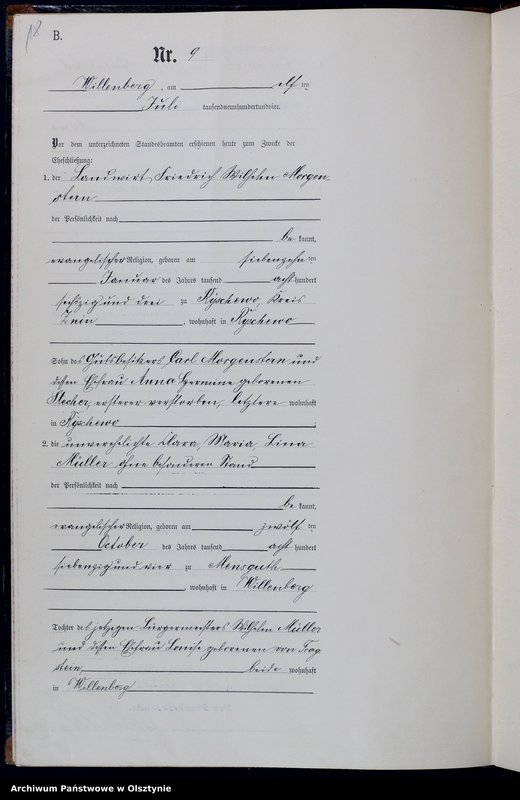 18
B.
Nr. 9
Willenberg, am elf ten
Juli tausendneunhundertundvier.
Vor dem unterzeichneten Standesbeamten erschienen heute zum Zwecke der
Eheschließung:
1. der Landwirt Friedrich Wilhelm Morgen-
stern
der Persönlichkeit nach
be kannt,
evangelischer Religion, geboren am siebenzehn ten
Januar des Jahres tausend acht hundert
sechzig und drei zu Ryschewo, Kreis
Znin, wohnhaft in Ryschewo
Sohn des Gutsbesitzers Carl Morgenstern und
dessen Ehefrau Anna Hermine geborenen
Stecher, ersterer verstorben, letztere wohnhaft
in Ryschewo.
2. die unverehelichte Clara, Maria, Lina
Müller ohne besonderen Stand
der Persönlichkeit nach
be kannt,
evangelischer Religion, geboren am zwölf ten
October des Jahres tausend acht hundert
siebenzig und vier zu Mensguth
, wohnhaft in Willenberg
Tochter des jetzigen Bürgermeisters Wilhelm Müller
und dessen Ehefrau Louise geborenen von
stein, beide wohnhaft
in Willenberg
Archiwum Państwowe w Olsztynie